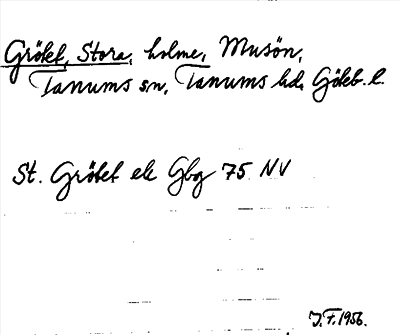 Grötet, Stora, holme, Musön,
Tanums sn, Tanums hd, Göteb. l.
St. Grötet ek Gbg 75 NV
J.F. 1956.